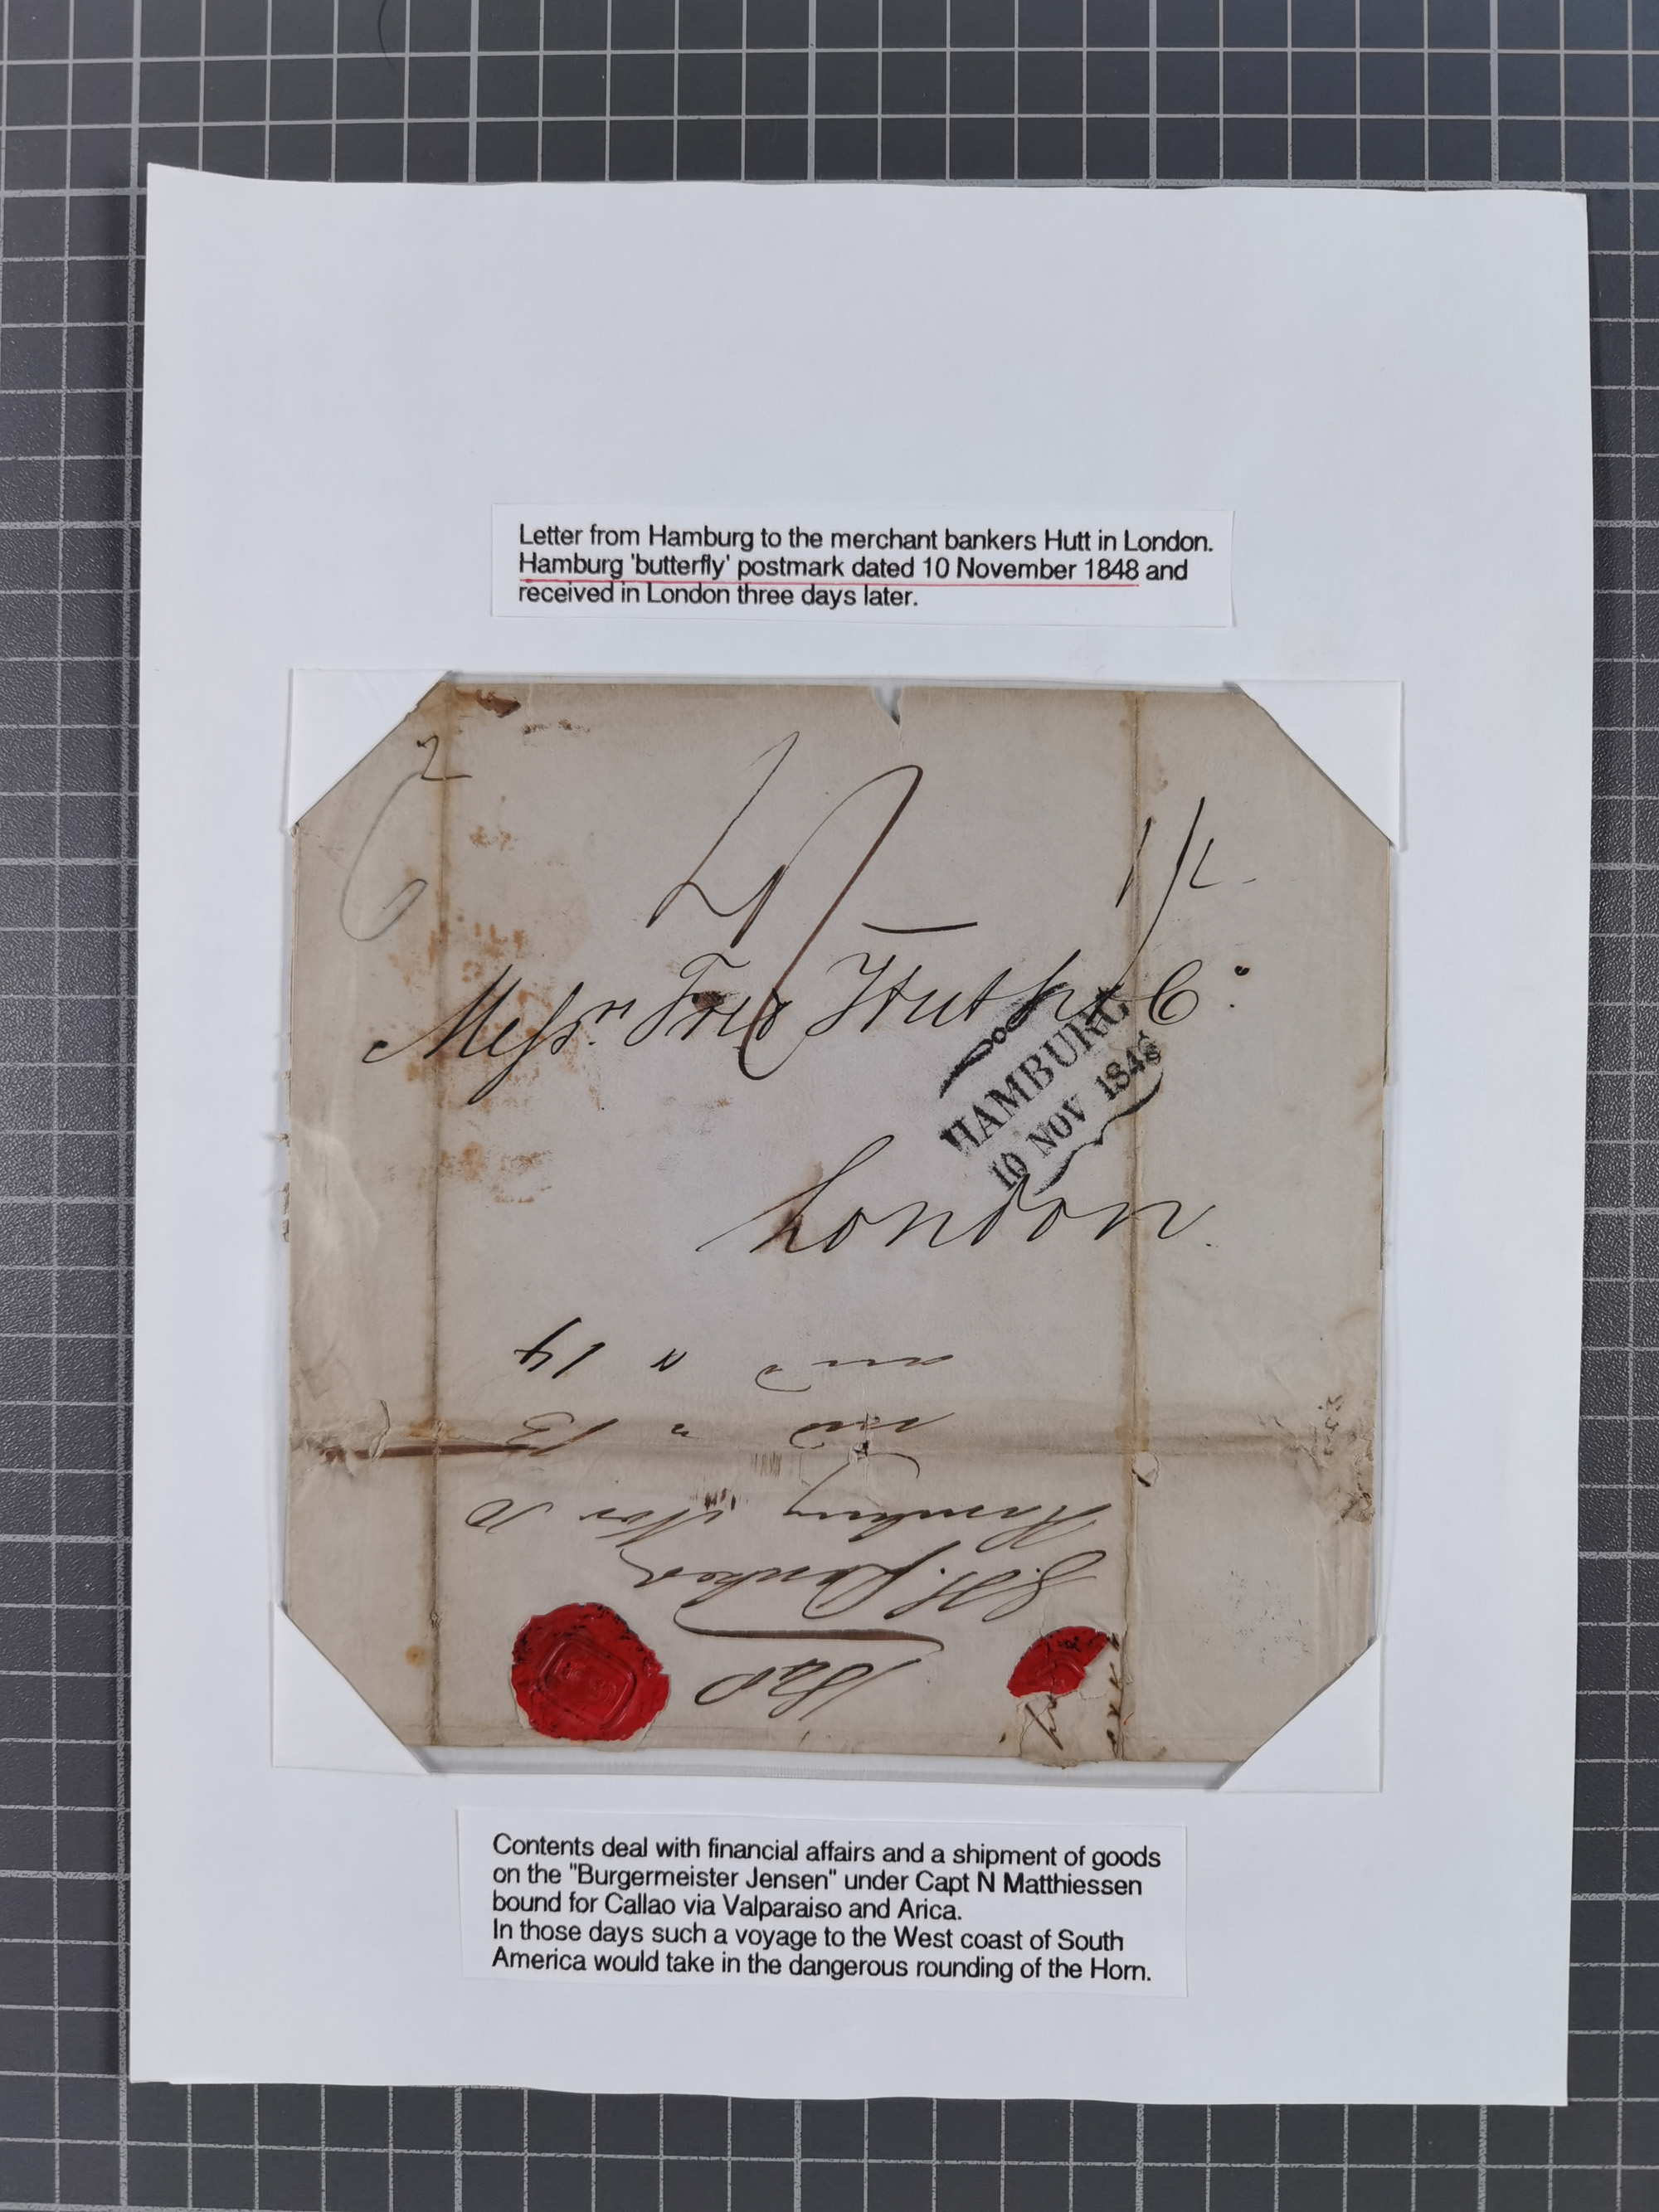 Letter from Hamburg to the merchant bankers Hutt in London.
Hamburg 'butterfly' postmark dated 10 November 1848 and
received in London three days later.
2
1/2
Messrs. Fred Huth & Co.
HAMBURG
10 NOV 184
London.
and " 14
" 13
Hamburg Nov 10
Contents deal with financial affairs and a shipment of goods
on the "Burgermeister Jensen" under Capt N Matthiessen
bound for Callao via Valparaiso and Arica.
In those days such a voyage to the West coast of South
America would take in the dangerous rounding of the Horn.